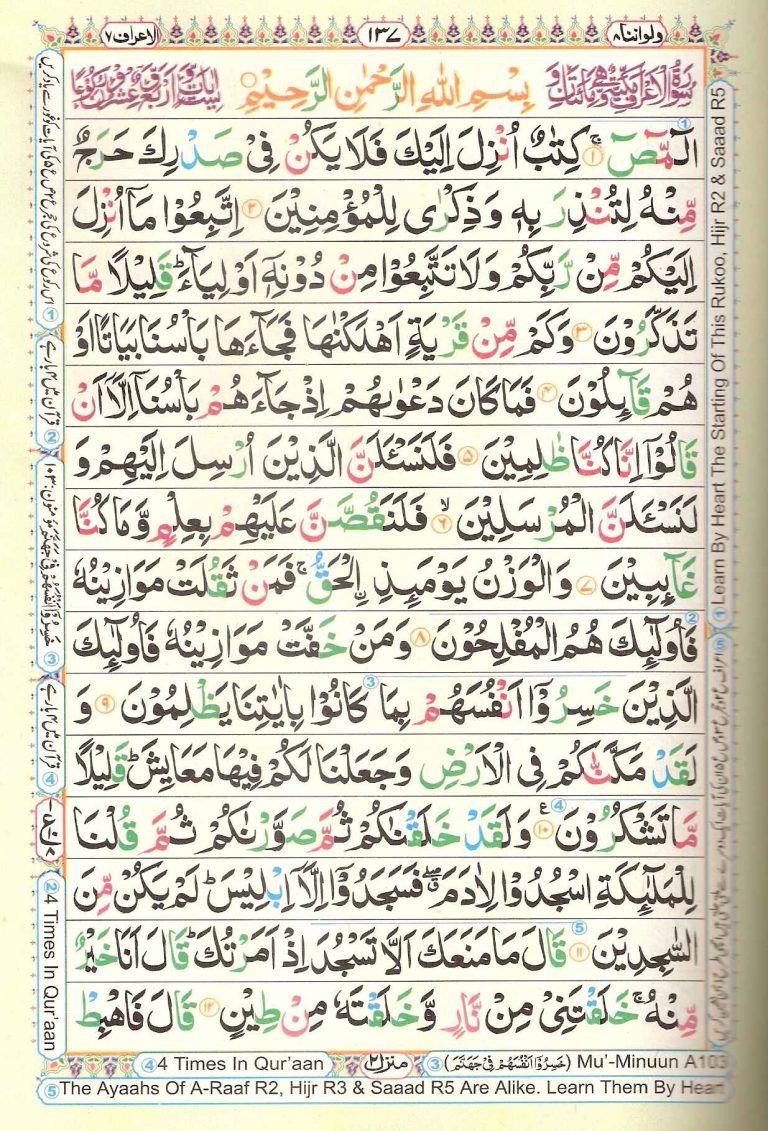 ولواننا ۸
۱۳۷
الاعراف ۷
بِسْمِ اللهِ الرَّحْمٰنِ الرَّحِيْمِ
الٓمّٓصٓ ۚ ۱ كِتٰبٌ اُنْزِلَ اِلَيْكَ فَلَا يَكُنْ فِىْ صَدْرِكَ حَرَجٌ
مِّنْهُ لِتُنْذِرَ بِهٖ وَذِكْرٰى لِلْمُؤْمِنِيْنَ ۲ اِتَّبِعُوْا مَاۤ اُنْزِلَ
اِلَيْكُمْ مِّنْ رَّبِّكُمْ وَلَا تَتَّبِعُوْا مِنْ دُوْنِهٖۤ اَوْلِيَآءَ ؕ قَلِيْلًا مَّا
تَذَكَّرُوْنَ ۳ وَكَمْ مِّنْ قَرْيَةٍ اَهْلَكْنٰهَا فَجَآءَهَا بَاْسُنَا بَيَاتًا اَوْ
هُمْ قَآئِلُوْنَ ۴ فَمَا كَانَ دَعْوٰىهُمْ اِذْ جَآءَهُمْ بَاْسُنَاۤ اِلَّاۤ اَنْ
قَالُوْۤا اِنَّا كُنَّا ظٰلِمِيْنَ ۵ فَلَنَسْئَلَنَّ الَّذِيْنَ اُرْسِلَ اِلَيْهِمْ وَ
لَنَسْئَلَنَّ الْمُرْسَلِيْنَ ۙ ۶ فَلَنَقُصَّنَّ عَلَيْهِمْ بِعِلْمٍ وَّمَا كُنَّا
غَآئِبِيْنَ ۷ وَالْوَزْنُ يَوْمَئِذِ ۨالْحَقُّ ۚ فَمَنْ ثَقُلَتْ مَوَازِيْنُهٗ
فَاُولٰٓئِكَ هُمُ الْمُفْلِحُوْنَ ۸ وَمَنْ خَفَّتْ مَوَازِيْنُهٗ فَاُولٰٓئِكَ
الَّذِيْنَ خَسِرُوْۤا اَنْفُسَهُمْ بِمَا كَانُوْا بِاٰيٰتِنَا يَظْلِمُوْنَ ۹ وَ
لَقَدْ مَكَّنّٰكُمْ فِى الْاَرْضِ وَجَعَلْنَا لَكُمْ فِيْهَا مَعَايِشَ ؕ قَلِيْلًا
مَّا تَشْكُرُوْنَ ۱۰ وَلَقَدْ خَلَقْنٰكُمْ ثُمَّ صَوَّرْنٰكُمْ ثُمَّ قُلْنَا
لِلْمَلٰٓئِكَةِ اسْجُدُوْا لِاٰدَمَ ۖ فَسَجَدُوْۤا اِلَّاۤ اِبْلِيْسَ ؕ لَمْ يَكُنْ مِّنَ
السّٰجِدِيْنَ ۱۱ قَالَ مَا مَنَعَكَ اَلَّا تَسْجُدَ اِذْ اَمَرْتُكَ ؕ قَالَ اَنَا خَيْرٌ
مِّنْهُ ۚ خَلَقْتَنِىْ مِنْ نَّارٍ وَّخَلَقْتَهٗ مِنْ طِيْنٍ ۱۲ قَالَ فَاهْبِطْ
① Learn By Heart The Starting Of This Rukoo, Hijr R2 & Saaad R5
② قرآن میں ۴ بار ہے
③ خَسِرُوْۤا اَنْفُسَهُمْ فِىْ جَهَنَّمَ مؤمنون: ۱۰۳
④ قرآن میں ۴ بار ہے
② 4 Times In Qur'aan
④ 4 Times In Qur'aan
منزل ۲
③ (خَسِرُوْۤا اَنْفُسَهُمْ فِىْ جَهَنَّمَ) Mu'-Minuun A103
⑤ The Ayaahs Of A-Raaf R2, Hijr R3 & Saaad R5 Are Alike. Learn Them By Heart